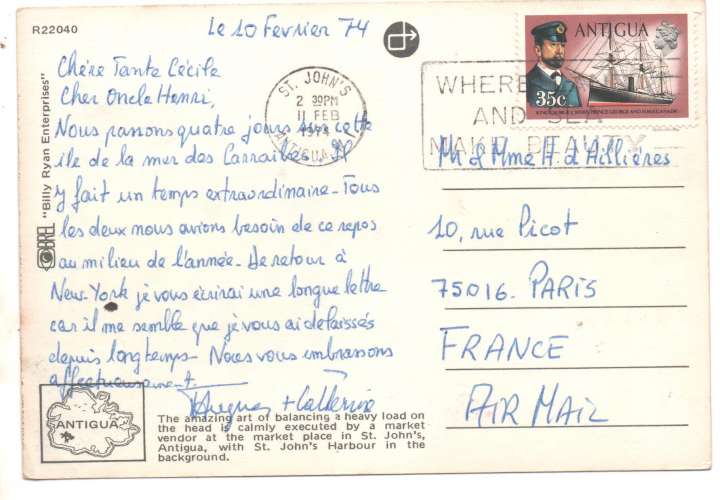 R22040
Le 10 Fevrier 74
Chère Tante Cécile
Cher Oncle Henri,
Nous passons quatre jours sur cette
île de la mer des Carraïbes. Il
y fait un temps extraordinaire. Tous
les deux nous avions besoin de ce repos
au milieu de l'année. De retour à
New-York je vous écrirai une longue lettre
car il me semble que je vous ai délaissés
depuis longtemps. Nous vous embrassons
affectueusement.
Hugues + Catherine
"Billy Ryan Enterprises"
ANTIGUA
The amazing art of balancing a heavy load on
the head is calmly executed by a market
vendor at the market place in St. John's,
Antigua, with St. John's Harbour in the
background.
ST. JOHN'S
2 30PM
11 FEB
1974
ANTIGUA
WHERE
AND SEA
MAKE BEAUTY
ANTIGUA
35c
Mr & Mme H. d'Aillières
10, rue Picot
75016. PARIS
FRANCE
AIR MAIL